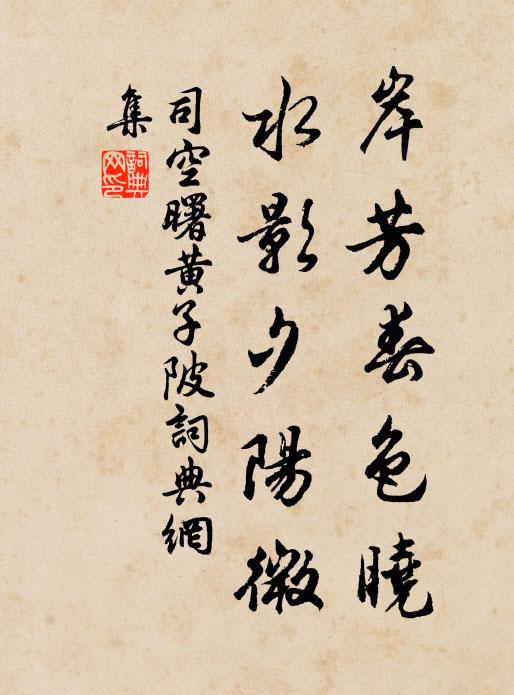 岸芳春色曉
水影夕陽微
司空曙黃子陂詞典網
集
詞典
网印